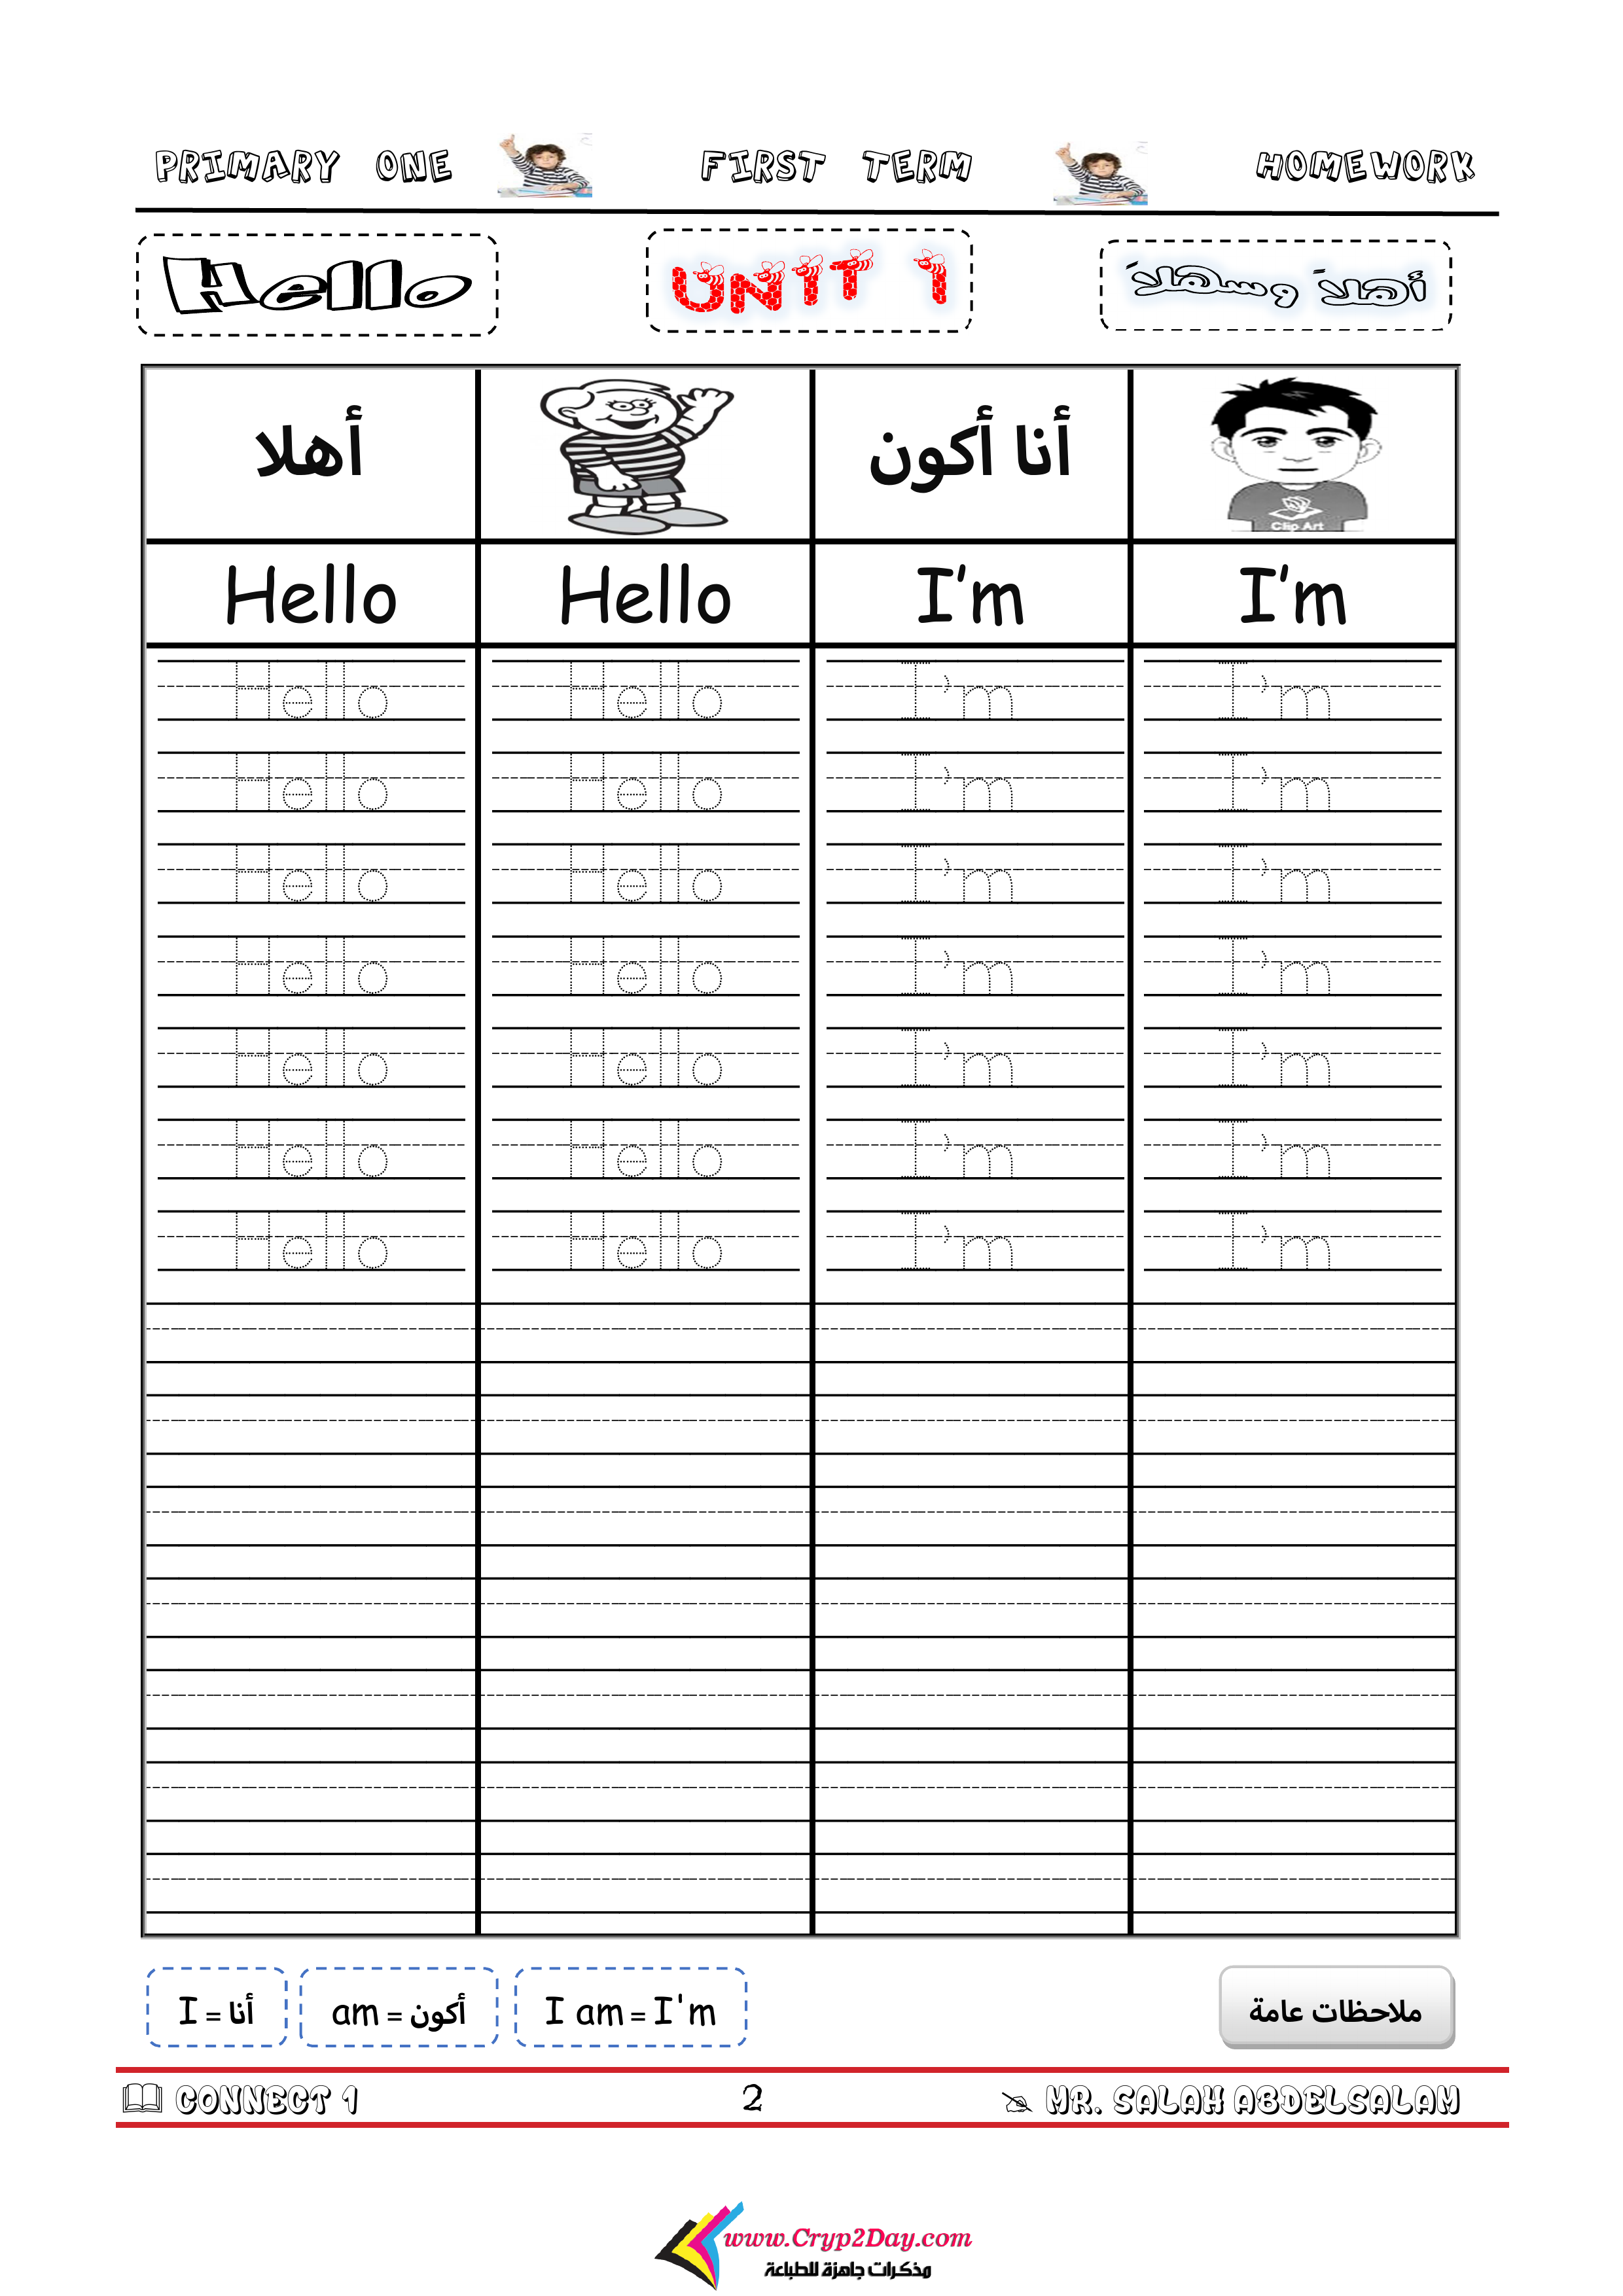 PRIMARY ONE FIRST TERM HOMEWORK
Hello UNIT 1 أهلاً وسهلاً
أهلا أنا أكون
Clip Art
Hello Hello I’m I’m
Hello Hello I’m I’m
Hello Hello I’m I’m
Hello Hello I’m I’m
Hello Hello I’m I’m
Hello Hello I’m I’m
Hello Hello I’m I’m
Hello Hello I’m I’m
I = أنا am = أكون I am = I'm ملاحظات عامة
CONNECT 1 2 MR. SALAH ABDELSALAM
www.Cryp2Day.com
مذكرات جاهزة للطباعة